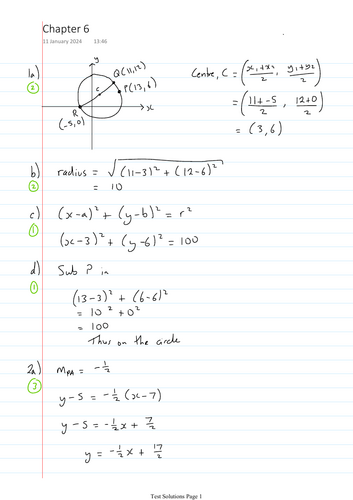 Chapter 6
11 January 2024 13:46
1a)
②
y
Q(11,12)
C
P(13,6)
R
(-5,0)
x
Centre, C = ( (x₁+x₂)/2 , (y₁+y₂)/2 )
= ( (11+-5)/2 , (12+0)/2 )
= (3,6)
b) radius = √((11-3)² + (12-6)²)
② = 10
c) (x-a)² + (y-b)² = r²
①
(x-3)² + (y-6)² = 100
d) Sub P in
①
(13-3)² + (6-6)²
= 10² + 0²
= 100
Thus on the circle
2a) mPA = -1/2
③
y-5 = -1/2 (x-7)
y-5 = -1/2x + 7/2
y = -1/2x + 17/2
Test Solutions Page 1